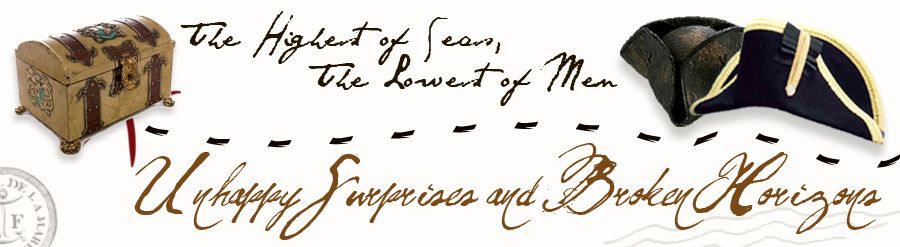 The Highest of Seas,
The Lowest of Men
Unhappy Surprises and Broken Horizons
DE LA MARI
F